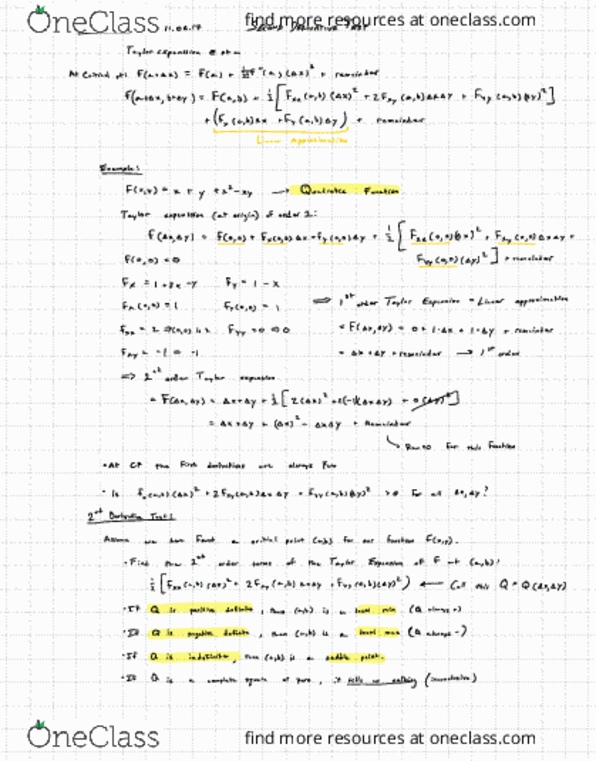 OneClass find more resources at oneclass.com
11.06.17 Second Derivative Test
Taylor expansion @
At Critical pt: F(a+Δx) = F(a) + ½F''(a)(Δx)² + remainder
F(a+Δx, b+Δy) = F(a,b) + ½[Fxx(a,b)(Δx)² + 2Fxy(a,b)ΔxΔy + Fyy(a,b)(Δy)²]
+ (Fx(a,b)Δx + Fy(a,b)Δy) + remainder
Linear Approximation
Example:
F(x,y) = x + y + x² - xy → Quadratic Function
Taylor expansion (at origin) of order 2:
F(Δx,Δy) = F(0,0) + Fx(0,0)Δx + Fy(0,0)Δy + ½[Fxx(0,0)(Δx)² + Fxy(0,0)ΔxΔy +
Fyy(0,0)(Δy)²] + remainder
F(0,0) = 0
Fx = 1+2x-y Fy = 1-x ⇒ 1st order Taylor Expansion = Linear approximation
Fx(0,0) = 1 Fy(0,0) = 1 = F(Δx,Δy) = 0 + 1·Δx + 1·Δy + remainder
Fxx = 2 Fyy = 0 ⇒ 0 = Δx + Δy + remainder → 1st order
Fxy = -1 ⇒ -1
⇒ 2nd order Taylor expansion
= F(Δx,Δy) = Δx+Δy + ½[2(Δx)² + 2(-1)(ΔxΔy) + 0(Δy)²]
= Δx+Δy + (Δx)² - ΔxΔy + Remainder
R=0 For this Function
•At CP the First derivatives are always
• Is Fxx(a,b)(Δx)² + 2Fxy(a,b)ΔxΔy + Fyy(a,b)(Δy)² >0 For all Δx,Δy?
2nd Derivative Test:
Assume we have Found a critical point (a,b) for our function F(x,y).
•Find the 2nd order terms of the Taylor Expansion of F at (a,b):
½[Fxx(a,b)(Δx)² + 2Fxy(a,b)ΔxΔy + Fyy(a,b)(Δy)²] ← Call this Q = Q(Δx,Δy)
•If Q is positive definite, then (a,b) is a local min (Q always +)
•If Q is negative definite, then (a,b) is a local max (Q always -)
•If Q is indefinite, then (a,b) is a saddle point.
•If Q is a complete square or zero, it tells us nothing (inconclusive)
OneClass find more resources at oneclass.com